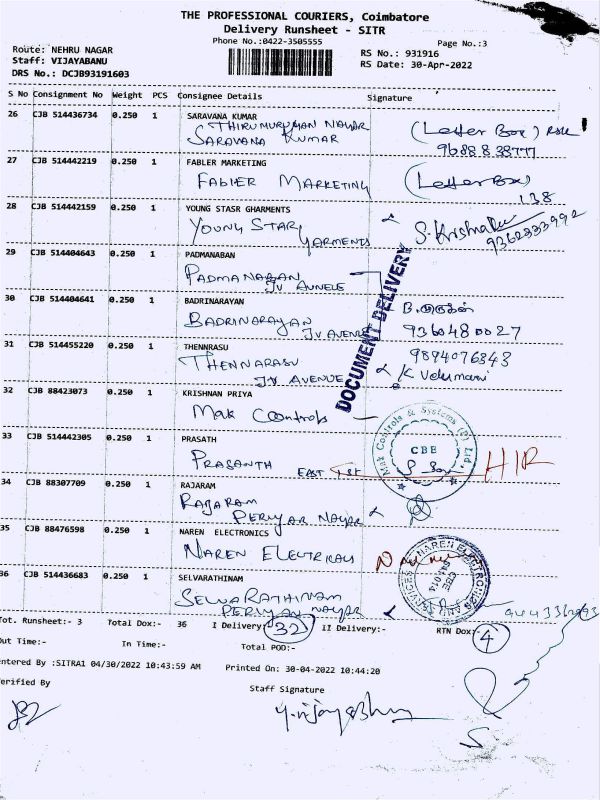 THE PROFESSIONAL COURIERS, Coimbatore
Delivery Runsheet - SITR
Phone No.:0422-3505555
Page No.:3
Route: NEHRU NAGAR
Staff: VIJAYABANU
DRS No.: DCJB93191603
RS No.: 931916
RS Date: 30-Apr-2022
S No Consignment No Weight PCS Consignee Details Signature
26 CJB 514436734 0.250 1 SARAVANA KUMAR
THIRUMURUGAN NAGAR
SARAVANA KUMAR
(Letter Box)
9688838777
27 CJB 514442219 0.250 1 FABLER MARKETING
FABLER MARKETING
(Letter Box)
138
28 CJB 514442159 0.250 1 YOUNG STASR GHARMENTS
YOUNG STAR GARMENTS
S. Krishna
9362333992
29 CJB 514404643 0.250 1 PADMANABAN
PADMANABAN
DOCUMENT DELIVERY
30 CJB 514404641 0.250 1 BADRINARAYAN
BADRINARAYAN
JV AVENUE
9360480027
31 CJB 514455220 0.250 1 THENNRASU
THENNARASU
JV AVENUE
9894076343
K Velumani
32 CJB 88423073 0.250 1 KRISHNAN PRIYA
Mak Controls
Mak Controls & Systems (P) Ltd.,
CBE
33 CJB 514442305 0.250 1 PRASATH
PRASANTH EAST
H/R
34 CJB 88307709 0.250 1 RAJARAM
RAJARAM
PERIYAR NAGAR
35 CJB 88476598 0.250 1 NAREN ELECTRONICS
NAREN ELECTRICALS
NAREN ELECTRONICS AND SERVICES
CBE
641014
36 CJB 514436683 0.250 1 SELVARATHINAM
SELVARATHINAM
PERIYAR NAGAR
Tot. Runsheet:- 3 Total Dox:- 36 I Delivery:- 32 II Delivery:- RTN Dox:- 4
Out Time:- In Time:- Total POD:-
Entered By :SITRA1 04/30/2022 10:43:59 AM Printed On: 30-04-2022 10:44:20
Verified By
Staff Signature